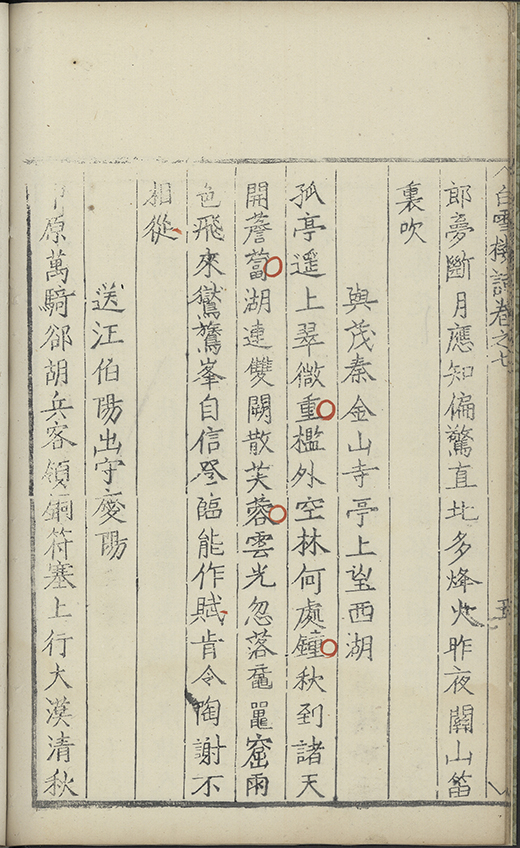 白雪樓詩卷之七
五
郎夢斷月應知偏驚直北多烽火昨夜關山笛
裏吹
與茂秦金山寺亭上望西湖
孤亭遥上翠微重檻外空林何處鐘秋到諸天
開薝蔔湖連雙闕散芙蓉雲光忽落黿鼉窟雨
色飛來鷲嶺峯自信登臨能作賦肯令陶謝不
相從
送汪伯陽出守慶陽
原萬騎郤胡兵客領銅符塞上行大漠清秋